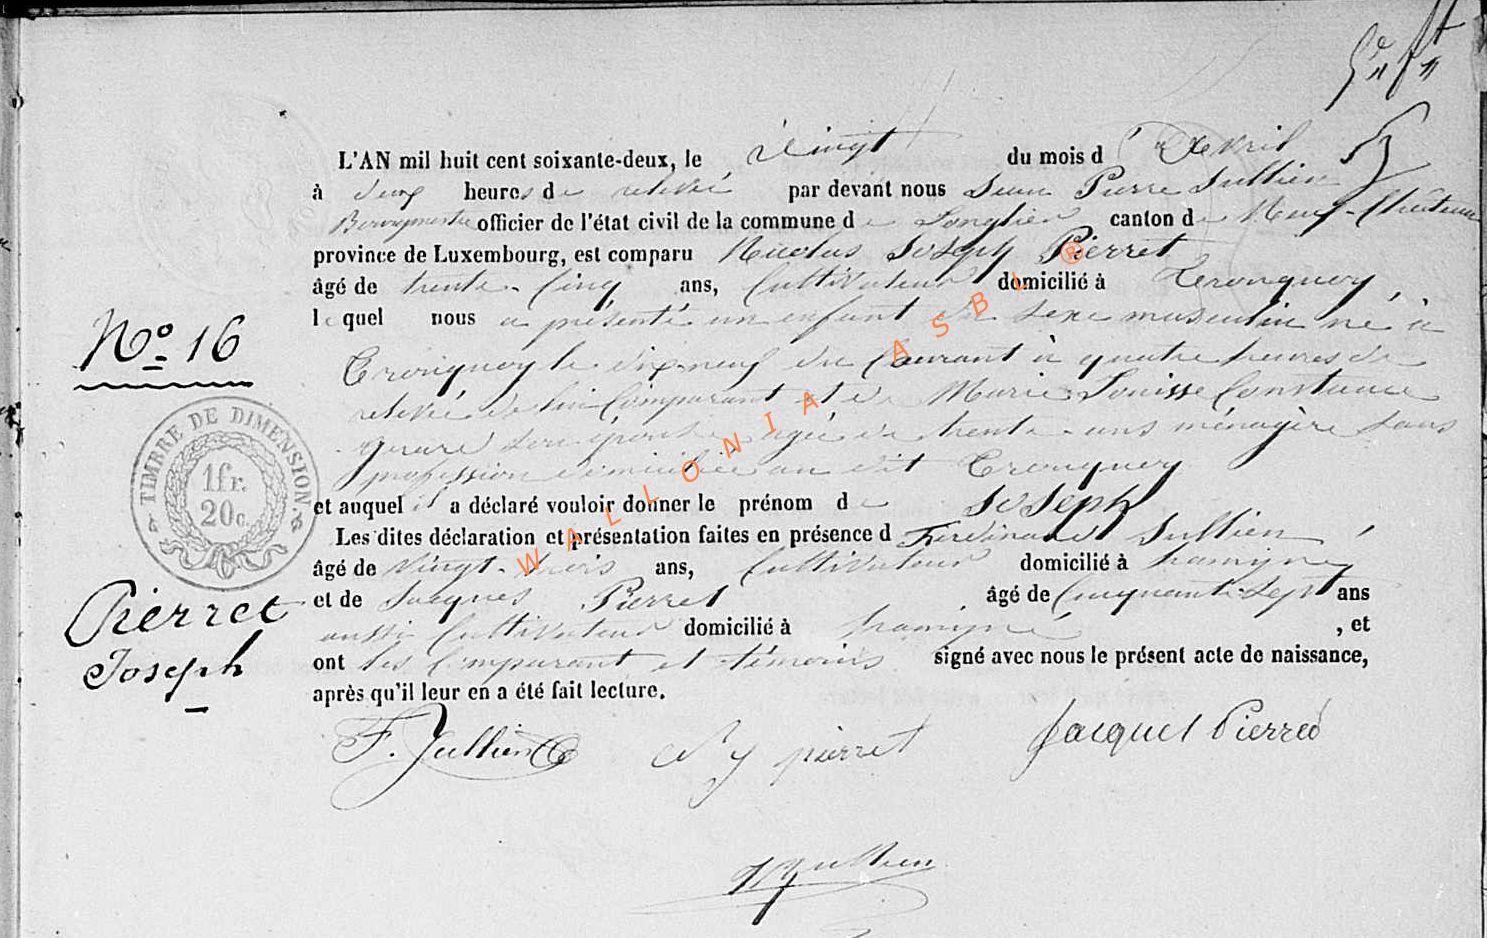 L'AN mil huit cent soixante-deux, le vingt du mois d'Avril
à deux heures de relevée par devant nous Jean Pierre Jullien
Bourgmestre officier de l'état civil de la commune de Longlier canton de Neuf-Château
province de Luxembourg, est comparu Nicolas Joseph Pierret
âgé de trente-cinq ans, Cultivateur domicilié à Tronquoy,
lequel nous a présenté un enfant du sexe masculin né à
Tronquoy le dix-neuf du Courant à quatre heures de
relevée de lui Comparant et de Marie Louisse Constance
son épouse agée de trente ans ménagère sans
profession domiciliée au dit Tronquoy
et auquel il a déclaré vouloir donner le prénom de Joseph
Les dites déclaration et présentation faites en présence d Ferdinand Jullien,
âgé de vingt-trois ans, Cultivateur domicilié à
et de Jacques Pierret âgé de Cinquante-Sept ans
aussi Cultivateur domicilié à , et
ont les Comparant et témoins signé avec nous le présent acte de naissance,
après qu'il leur en a été fait lecture.
F. Jullien N J pierret Jacques Pierret
JP Jullien
No 16
TIMBRE DE DIMENSION.
1fr.
20c.
Pierret
Joseph
WALLONIA ASBL ®